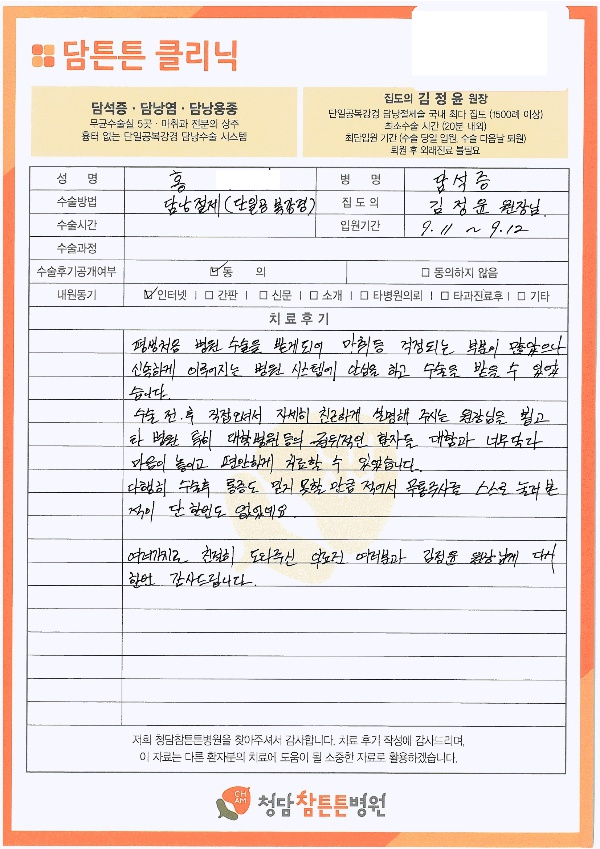 담튼튼 클리닉
담석증 · 담낭염 · 담낭용종
무균수술실 5곳 · 마취과 전문의 상주
흉터 없는 단일공복강경 담낭수술 시스템
집도의 김정윤 원장
단일공복강경 담낭절제술 국내 최다 집도 (1500례 이상)
최소수술 시간 (20분 내외)
최단입원 기간 (수술 당일 입원, 수술 다음날 퇴원)
퇴원 후 외래진료 불필요
성 명 홍 병 명 담석증
수술방법 담낭절제 (단일공 복강경) 집 도 의 김정윤 원장님.
수술시간 입원기간 9.11 ~ 9.12
수술과정
수술후기공개여부 ☑ 동 의 □ 동의하지 않음
내원동기 ☑ 인터넷 | □ 간판 | □ 신문 | □ 소개 | □ 타병원의뢰 | □ 타과진료후 | □ 기타
치 료 후 기
평생처음 병원 수술을 받게되어 마취등 걱정되는 부분이 많았으나
신속하게 이루어지는 병원 시스템에 안심을 하고 수술을 받을 수 있었
습니다.
수술 전.후 직접오셔서 자세히 친근하게 설명해 주시는 원장님을 뵙고
타 병원 특히 대학병원등의 환자들 대함과 너무달라
마음이 놓이고 편안하게 치료할 수 있었습니다.
다행히 수술후 통증도 믿지 못할 만큼 적어서 무통주사를 스스로 눌러 본
적이 단 한번도 없었네요.
여러가지로 친절히 도와주신 의료진 여러분과 김정윤 원장님께 다시
한번 감사드립니다.
저희 청담참튼튼병원을 찾아주셔서 감사합니다. 치료 후기 작성에 감사드리며,
이 자료는 다른 환자분의 치료에 도움이 될 소중한 자료로 활용하겠습니다.
CH
AM
청담참튼튼병원